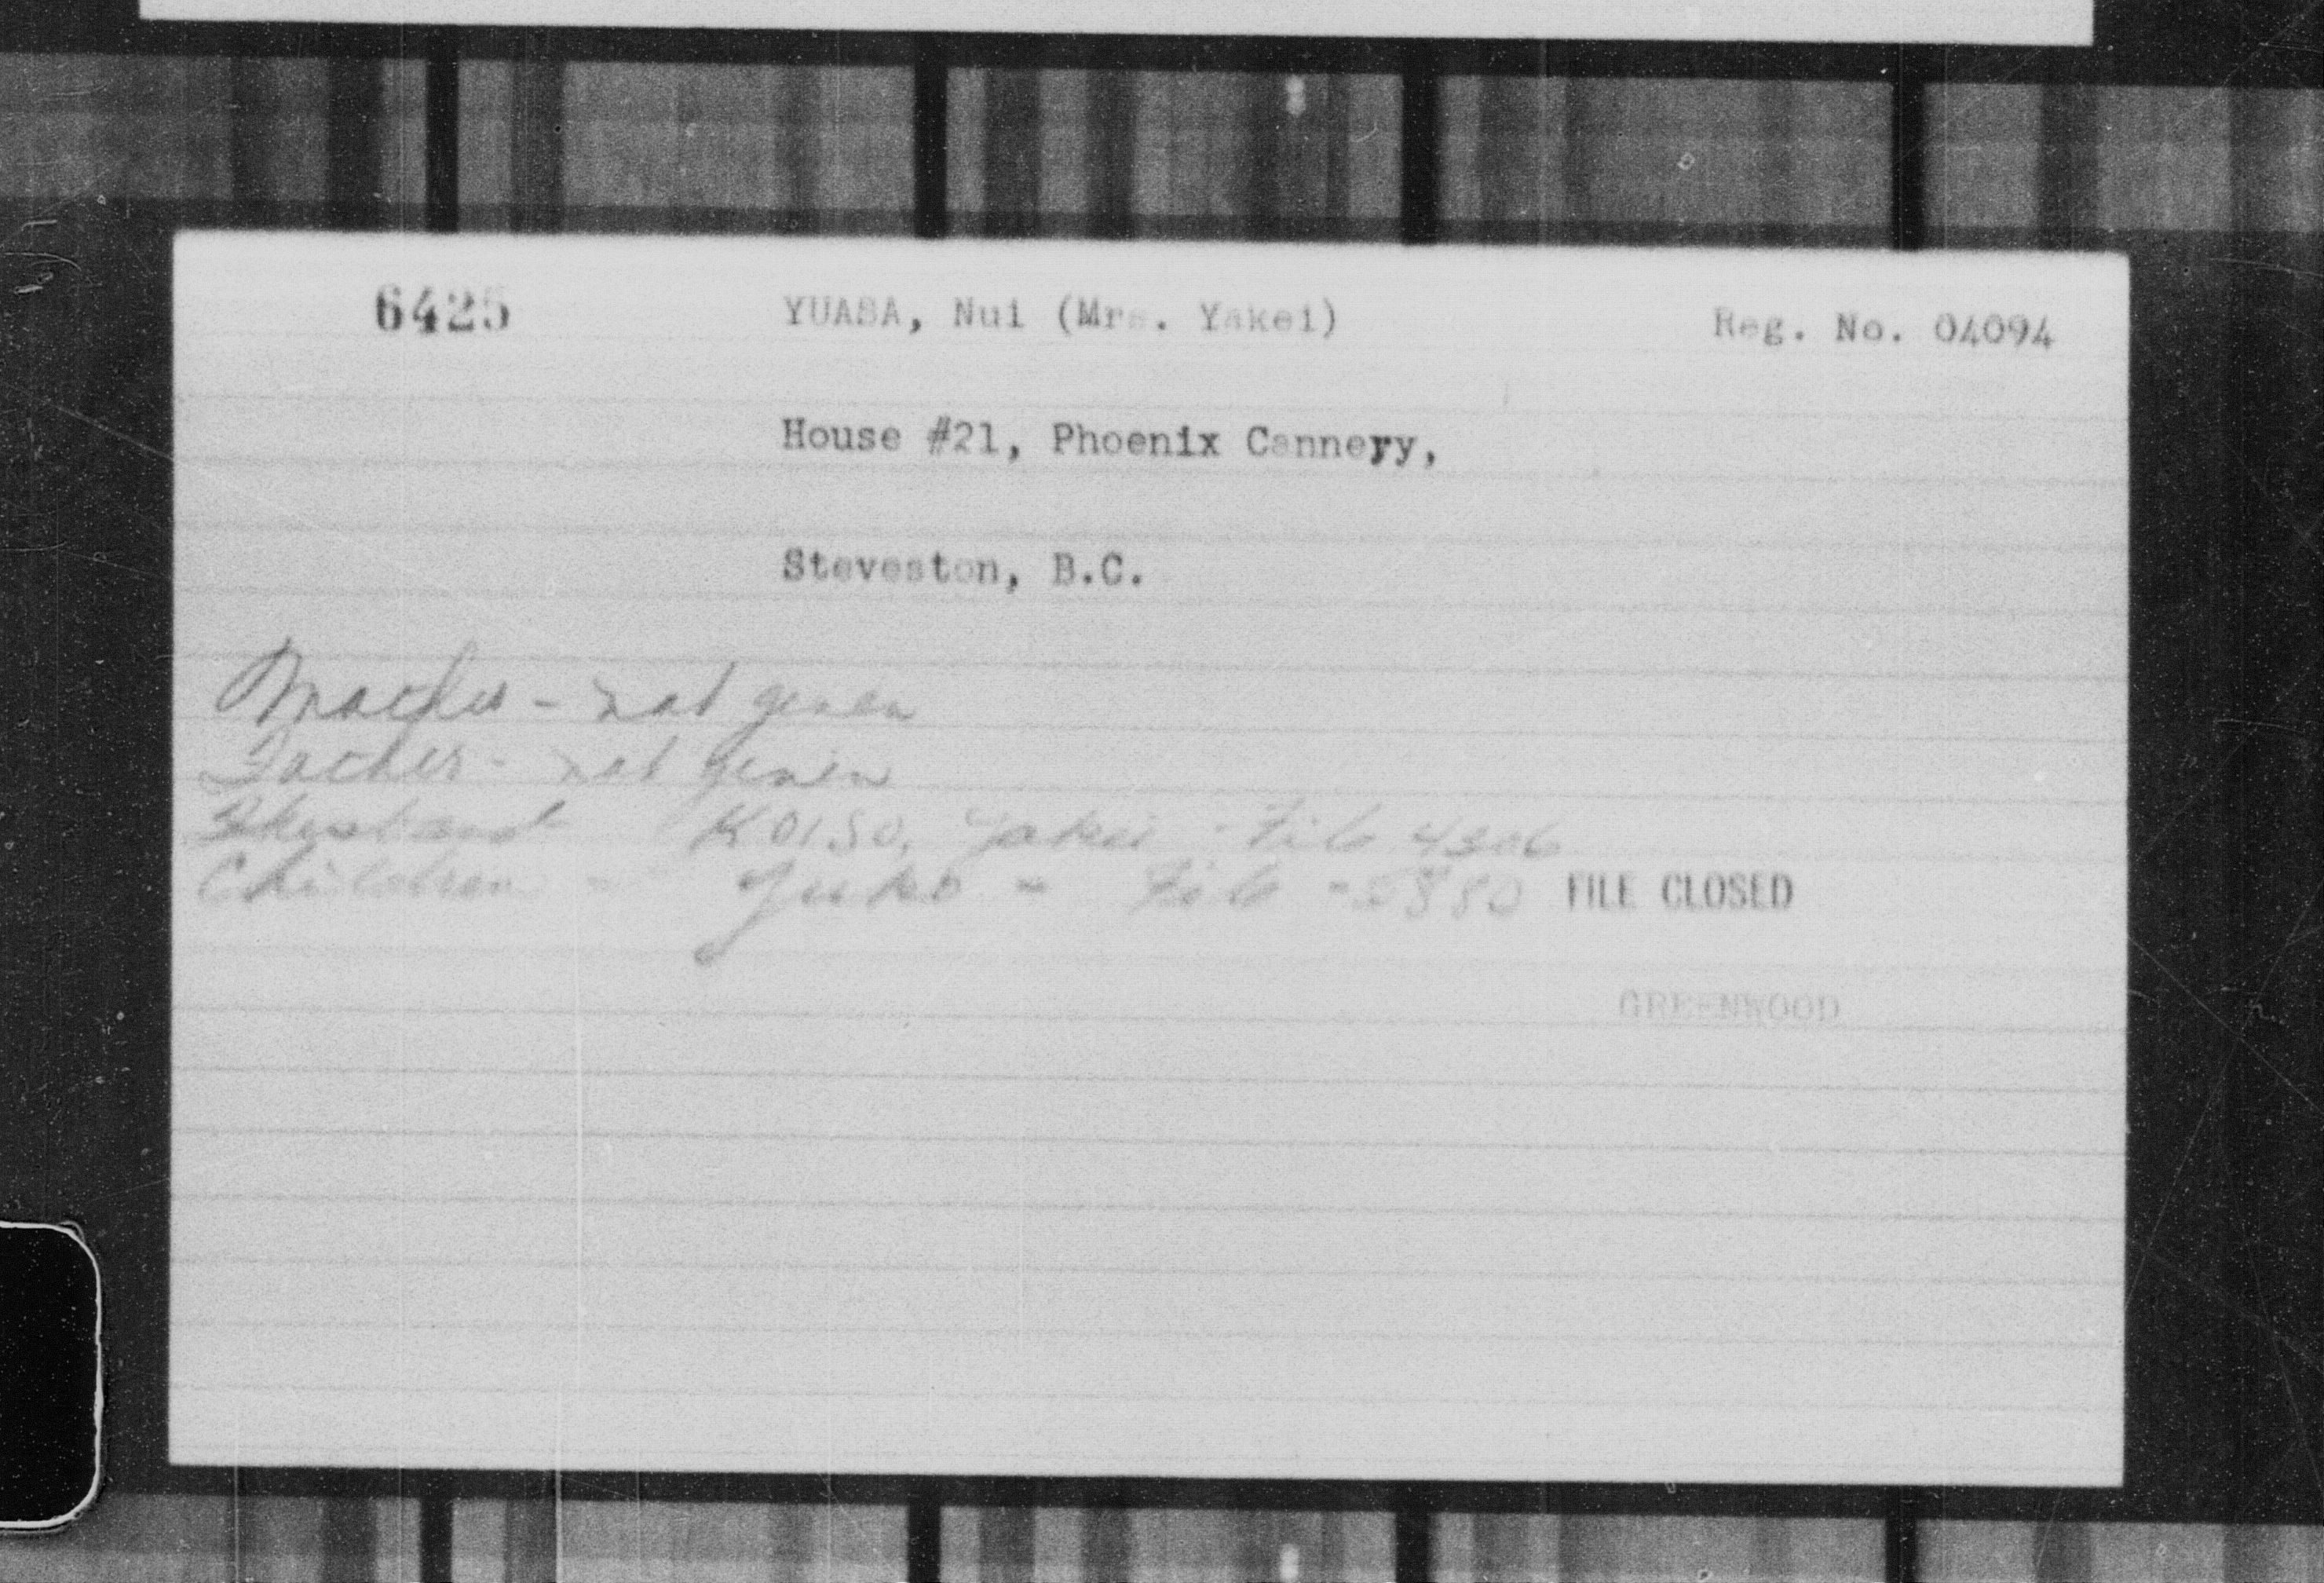 6425 YUASA, Nui (Mrs. Yakei) Reg. No. 04094
House #21, Phoenix Cannery,
Steveston, B.C.
Mother - not given
Father - not given
Husband KOISO, Yakei - File 4306
Children - Yuko - File - 5880 FILE CLOSED
GREENWOOD